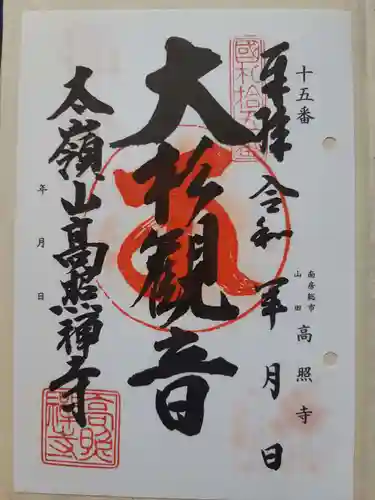 十五番
南房総市
山田
高照寺
奉拝
令和 年 月 日
國札拾五番
大松観音
太嶺山高照禅寺
年 月 日
高照禅寺